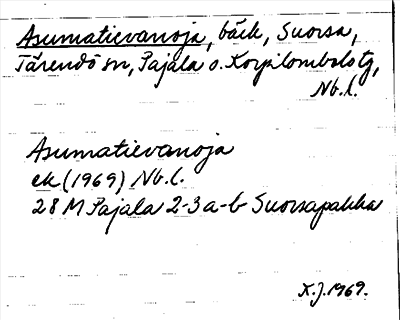 Asumatievanoja, bäck, Suorsa,
Tärendö sn, Pajala o. Korpilombolo tg,
Nb.l.
Asumatievanoja
ek (1969) Nb.l.
28 M Pajala 2-3 a-b Suorsapakka
K.J. 1969.